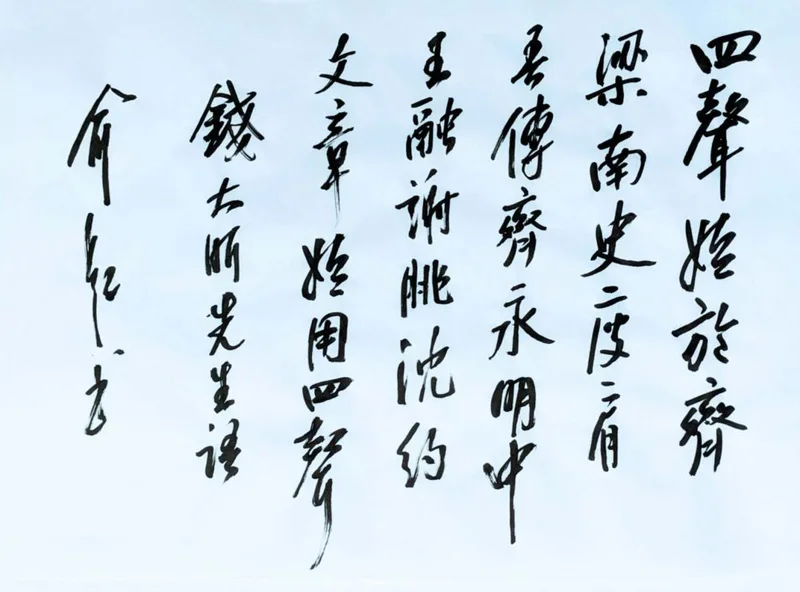 四聲始於齊
梁南史庾肩
吾傳齊永明中
王融謝朓沈約
文章始用四聲
錢大昕先生語
俞